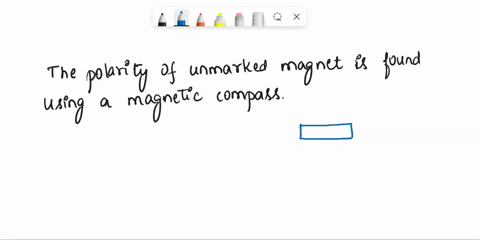 The polarity of unmarked magnet is found
using a magnetic compass.